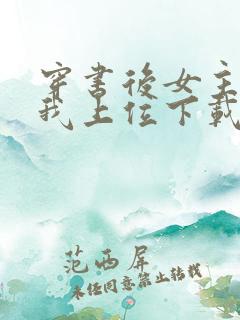 穿書後女主
我上位下載
范西屏
未经同意禁止转载